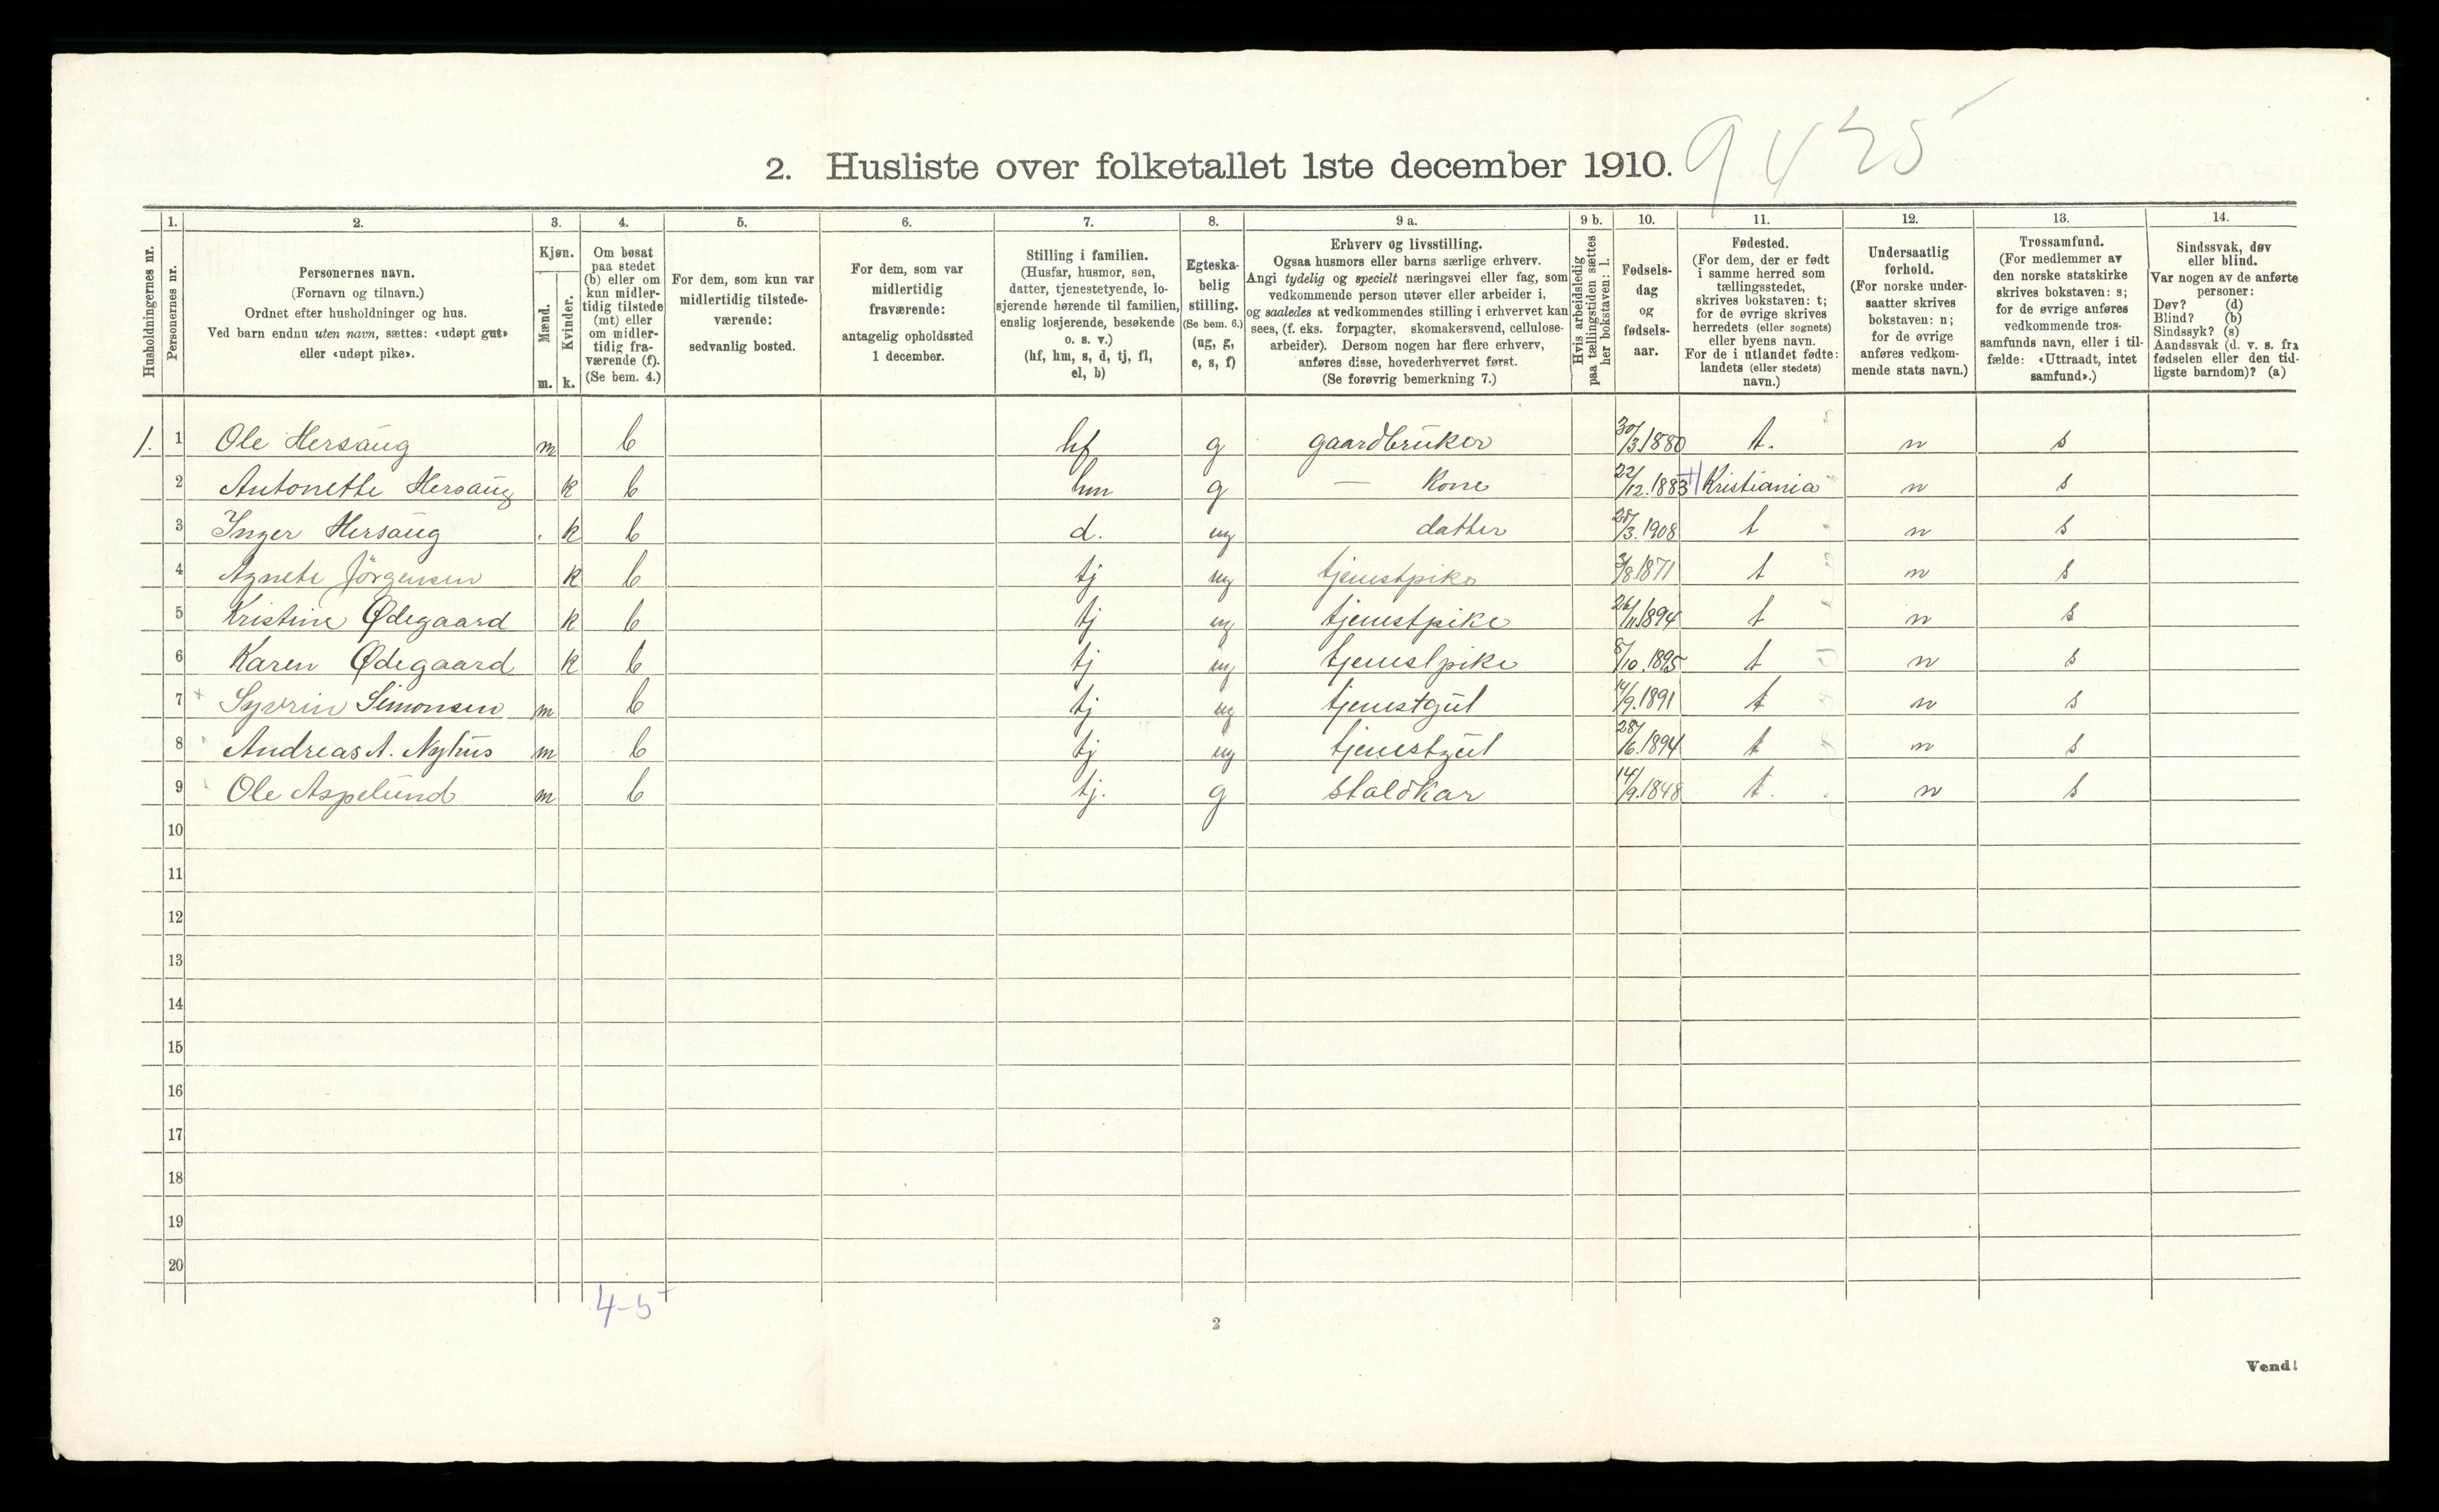 9425
2. Husliste over folketallet 1ste december 1910.
Husholdningernes nr.
1.
Personernes nr.
2.
Personernes navn.
(Fornavn og tilnavn.)
Ordnet efter husholdninger og hus.
Ved barn endnu uten navn, sættes: «udøpt gut»
eller «udøpt pike».
3.
Kjøn.
Mænd.
Kvinder.
m. k.
4.
Om bosat
paa stedet
(b) eller om
kun midler-
tidig tilstede
(mt) eller
om midler-
tidig fra-
værende (f).
(Se bem. 4.)
5.
For dem, som kun var
midlertidig tilstede-
værende:
sedvanlig bosted.
6.
For dem, som var
midlertidig
fraværende:
antagelig opholdssted
1 december.
7.
Stilling i familien.
(Husfar, husmor, søn,
datter, tjenestetyende, lo-
sjerende hørende til familien,
enslig losjerende, besøkende
o. s. v.)
(hf, hm, s, d, tj, fl,
el, b)
8.
Egteska-
belig
stilling.
(Se bem. 6.)
(ug, g,
e, s, f)
9 a.
Erhverv og livsstilling.
Ogsaa husmors eller barns særlige erhverv.
Angi tydelig og specielt næringsvei eller fag, som
vedkommende person utøver eller arbeider i,
og saaledes at vedkommendes stilling i erhvervet kan
sees, (f. eks. forpagter, skomakersvend, cellulose-
arbeider). Dersom nogen har flere erhverv,
anføres disse, hovederhvervet først.
(Se forøvrig bemerkning 7.)
9 b.
Hvis arbeidsledig
paa tællingstiden sættes
her bokstaven: l.
10.
Fødsels-
dag
og
fødsels-
aar.
11.
Fødested.
(For dem, der er født
i samme herred som
tællingsstedet,
skrives bokstaven: t;
for de øvrige skrives
herredets (eller sognets)
eller byens navn.
For de i utlandet fødte:
landets (eller stedets)
navn.)
12.
Undersaatlig
forhold.
(For norske under-
saatter skrives
bokstaven: n;
for de øvrige
anføres vedkom-
mende stats navn.)
13.
Trossamfund.
(For medlemmer av
den norske statskirke
skrives bokstaven: s;
for de øvrige anføres
vedkommende tros-
samfunds navn, eller i til-
fælde: «Uttraadt, intet
samfund».)
14.
Sindssvak, døv
eller blind.
Var nogen av de anførte
personer:
Døv? (d)
Blind? (b)
Sindssyk? (s)
Aandssvak (d. v. s. fra
fødselen eller den tid-
ligste barndom)? (a)
1. 1 Ole Hersaug m b hf g gaardbruker 30/3.1880 t. n s
2 Antonette Hersaug k b hm g — Kone 22/12.1883 Kristiania n s
3 Inger Hersaug k b d. ug datter 28/3.1908 t n s
4 Agnete Jörgensen k b tj ug tjenestpike 3/8.1871 t n s
5 Kristine Ødegaard k b tj ug tjenestpike 26/11.1894 t n s
6 Karen Ødegaard k b tj ug tjenestpike 8/10.1895 t n s
7 + Syvrin Simonsen m b tj ug tjenestgut 14/9.1891 t n s
8 Andreas A. Nyhus m b tj ug tjenestgut 28/6.1894 t n s
9 Ole Aspelund m b tj. g staldkar 14/9.1848 t. n s
10
11
12
13
14
15
16
17
18
19
20
4-5
2
Vend!